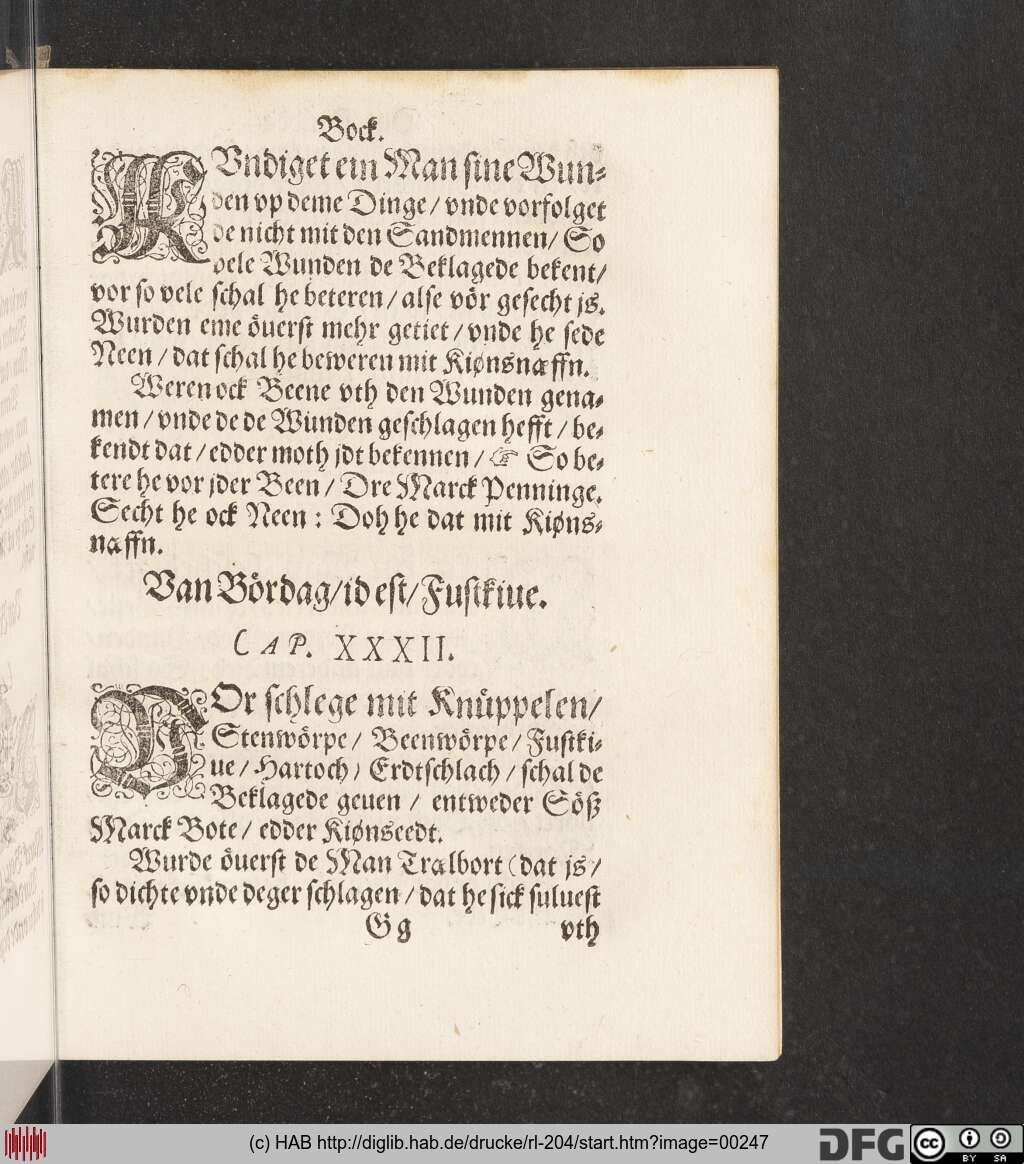 Bock.
KVndiget ein Man sine Wun-
den vp deme Dinge / vnde vorfolget
de nicht mit den Sandmennen / So
vele Wunden de Beklagede bekent /
vor so vele schal he beteren / alse vör gesecht js.
Wurden eme öuerst mehr getiet / vnde he sede
Neen / dat schal he beweren mit Kiønsnæffn.
Weren ock Beene vth den Wunden gena-
men / vnde de de Wunden geschlagen hefft / be-
kendt dat / edder moth jdt bekennen / ☞ So be-
tere he vor jder Been / Dre Marck Penninge.
Secht he ock Neen : Doh he dat mit Kiøns-
næffn.
Van Bördag / id est / Fustkiue.
CAP. XXXII.
VOr schlege mit Knüppelen /
Stenwörpe / Beenwörpe / Fustki-
ue / Hartoch / Erdtschlach / schal de
Beklagede geuen / entweder Söß
Marck Bote / edder Kiønseedt.
Wurde öuerst de Man Trælbort (dat js /
so dichte vnde deger schlagen / dat he sick suluest
Gg vth
(c) HAB http://diglib.hab.de/drucke/rl-204/start.htm?image=00247
DFG
cc BY SA